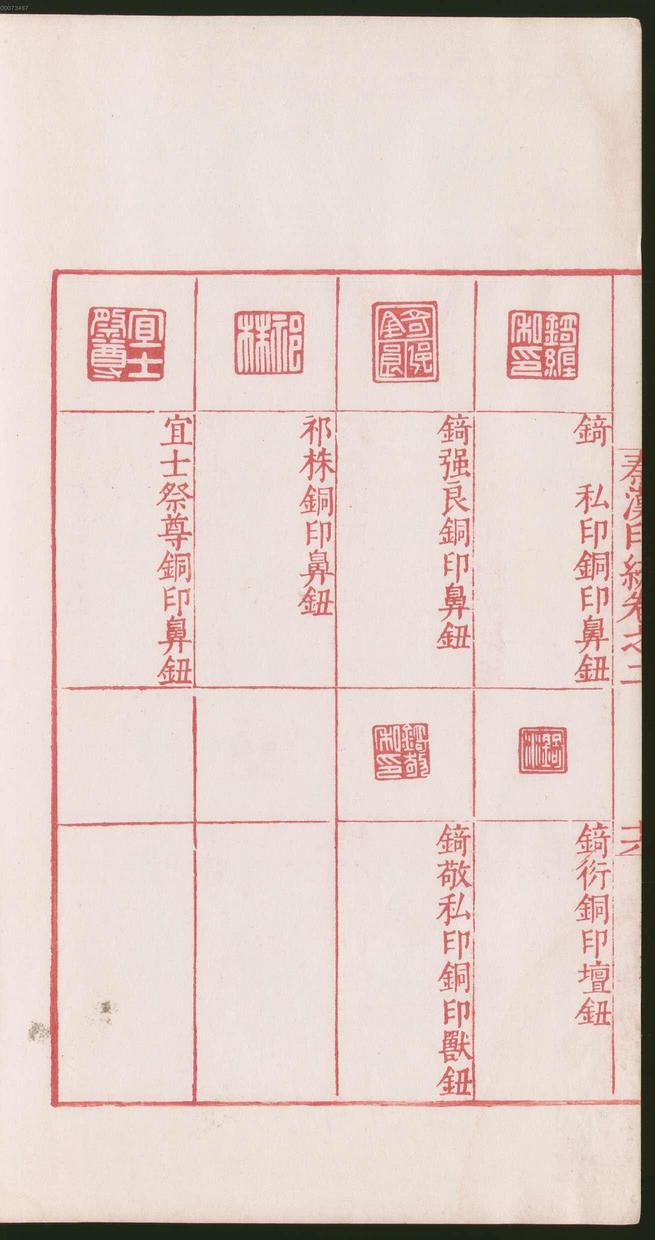 秦漢印統卷之二
十六
錡　私印銅印鼻鈕
錡衍銅印壇鈕
錡强良銅印鼻鈕
錡敬私印銅印獸鈕
祁株銅印鼻鈕
宜士祭尊銅印鼻鈕
00073467